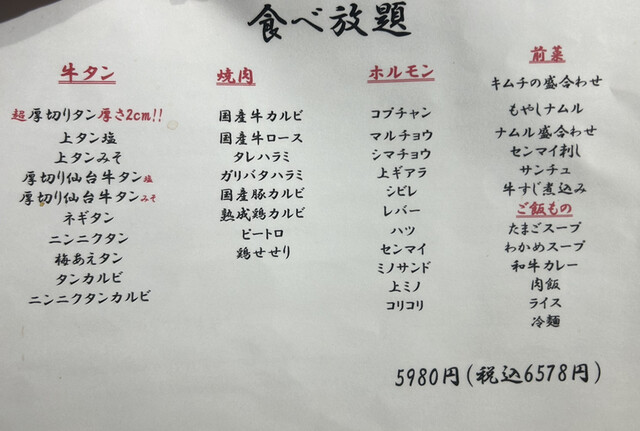 食べ放題
牛タン
超厚切りタン厚さ2cm!!
上タン塩
上タンみそ
厚切り仙台牛タン塩
厚切り仙台牛タンみそ
ネギタン
ニンニクタン
梅あえタン
タンカルビ
ニンニクタンカルビ
焼肉
国産牛カルビ
国産牛ロース
タレハラミ
ガリバタハラミ
国産豚カルビ
熟成鶏カルビ
ピートロ
鶏せせり
ホルモン
コプチャン
マルチョウ
シマチョウ
上ギアラ
シビレ
レバー
ハツ
センマイ
ミノサンド
上ミノ
コリコリ
前菜
キムチの盛合わせ
もやしナムル
ナムル盛合わせ
センマイ刺し
サンチュ
牛すじ煮込み
ご飯もの
たまごスープ
わかめスープ
和牛カレー
肉飯
ライス
冷麺
5980円(税込6578円)